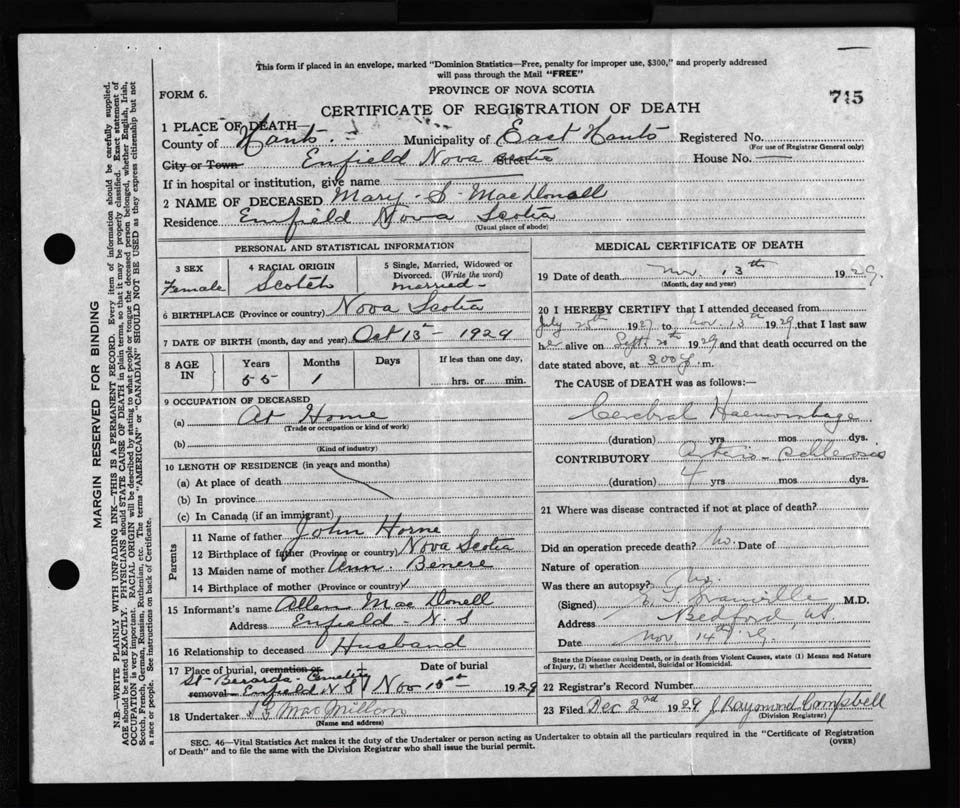 This form if placed in an envelope, marked "Dominion Statistics—Free, penalty for improper use, $300," and properly addressed
will pass through the Mail "FREE"
FORM 6.
PROVINCE OF NOVA SCOTIA
745
CERTIFICATE OF REGISTRATION OF DEATH
1 PLACE OF DEATH—
County of Hants Municipality of East Hants Registered No.
(For use of Registrar General only)
City or Town Enfield Nova Scotia Street House No. —
If in hospital or institution, give name
2 NAME OF DECEASED Mary S MacDonell
Residence Enfield Nova Scotia
(Usual place of abode)
PERSONAL AND STATISTICAL INFORMATION
3 SEX Female
4 RACIAL ORIGIN Scotch
5 Single, Married, Widowed or
Divorced. (Write the word)
married
6 BIRTHPLACE (Province or country) Nova Scotia
7 DATE OF BIRTH (month, day and year) Oct 13th - 1929
8 AGE IN
Years 55
Months 1
Days
If less than one day,
hrs. or min.
9 OCCUPATION OF DECEASED
(a) At Home
(Trade or occupation or kind of work)
(b)
(Kind of industry)
10 LENGTH OF RESIDENCE (in years and months)
(a) At place of death
(b) In province
(c) In Canada (if an immigrant)
Parents
11 Name of father John Horne
12 Birthplace of father (Province or country) Nova Scotia
13 Maiden name of mother Ann Benere
14 Birthplace of mother (Province or country)
15 Informant's name Allen MacDonell
Address Enfield - N.S
16 Relationship to deceased Husband
17 Place of burial, cremation or Date of burial
St Cemetery
removal Enfield N.S Nov 15th 1929
18 Undertaker MacMillan
(Name and address)
MEDICAL CERTIFICATE OF DEATH
19 Date of death Nov. 13th 1929.
(Month, day and year)
20 I HEREBY CERTIFY that I attended deceased from
July 1927 to Nov. 13th 1929 that I last saw
her alive on Sept. 20th 1929 and that death occurred on the
date stated above, at 3.00 p. m.
The CAUSE of DEATH was as follows:—
Cerebral Haemorrhage
(duration) yrs. mos. dys.
CONTRIBUTORY Arterio-Schlerosis
(duration) 4 yrs. mos. dys.
21 Where was disease contracted if not at place of death?
Did an operation precede death? No. Date of
Nature of operation
Was there an autopsy? No.
(Signed) Granville M.D.
Address Bedford NS.
Date Nov 14th 29
State the Disease causing Death, or in death from Violent Causes, state (1) Means and Nature
of Injury, (2) whether Accidental, Suicidal or Homicidal.
22 Registrar's Record Number
23 Filed Dec 2nd 1929 J Raymond Campbell
(Division Registrar)
SEC. 46—Vital Statistics Act makes it the duty of the Undertaker or person acting as Undertaker to obtain all the particulars required in the "Certificate of Registration
of Death" and to file the same with the Division Registrar who shall issue the burial permit. (OVER)
MARGIN RESERVED FOR BINDING
N.B.—WRITE PLAINLY WITH UNFADING INK—THIS IS A PERMANENT RECORD. Every item of information should be carefully supplied.
AGE should be stated EXACTLY. PHYSICIANS should STATE CAUSE OF DEATH in plain terms, so that it may be properly classified. Exact statement of
OCCUPATION is very important. RACIAL ORIGIN will be described by stating to what people or tongue the deceased person belonged, whether English, Irish,
Scotch, French, German, Russian, Ruthenian, etc. The terms "AMERICAN" or "CANADIAN" SHOULD NOT BE USED as they express citizenship but not
a race or people. See instructions on back of Certificate.